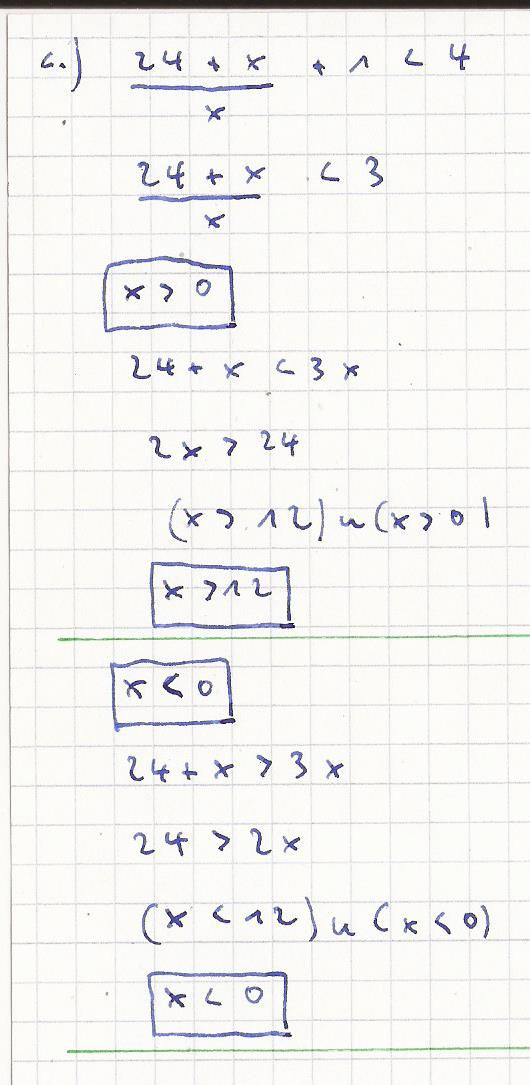 c.) 24 + x / x + 1 < 4
24 + x / x < 3
x > 0
24 + x < 3x
2x > 24
(x > 12) u (x > 0)
x > 12
x < 0
24 + x > 3x
24 > 2x
(x < 12) u (x < 0)
x < 0